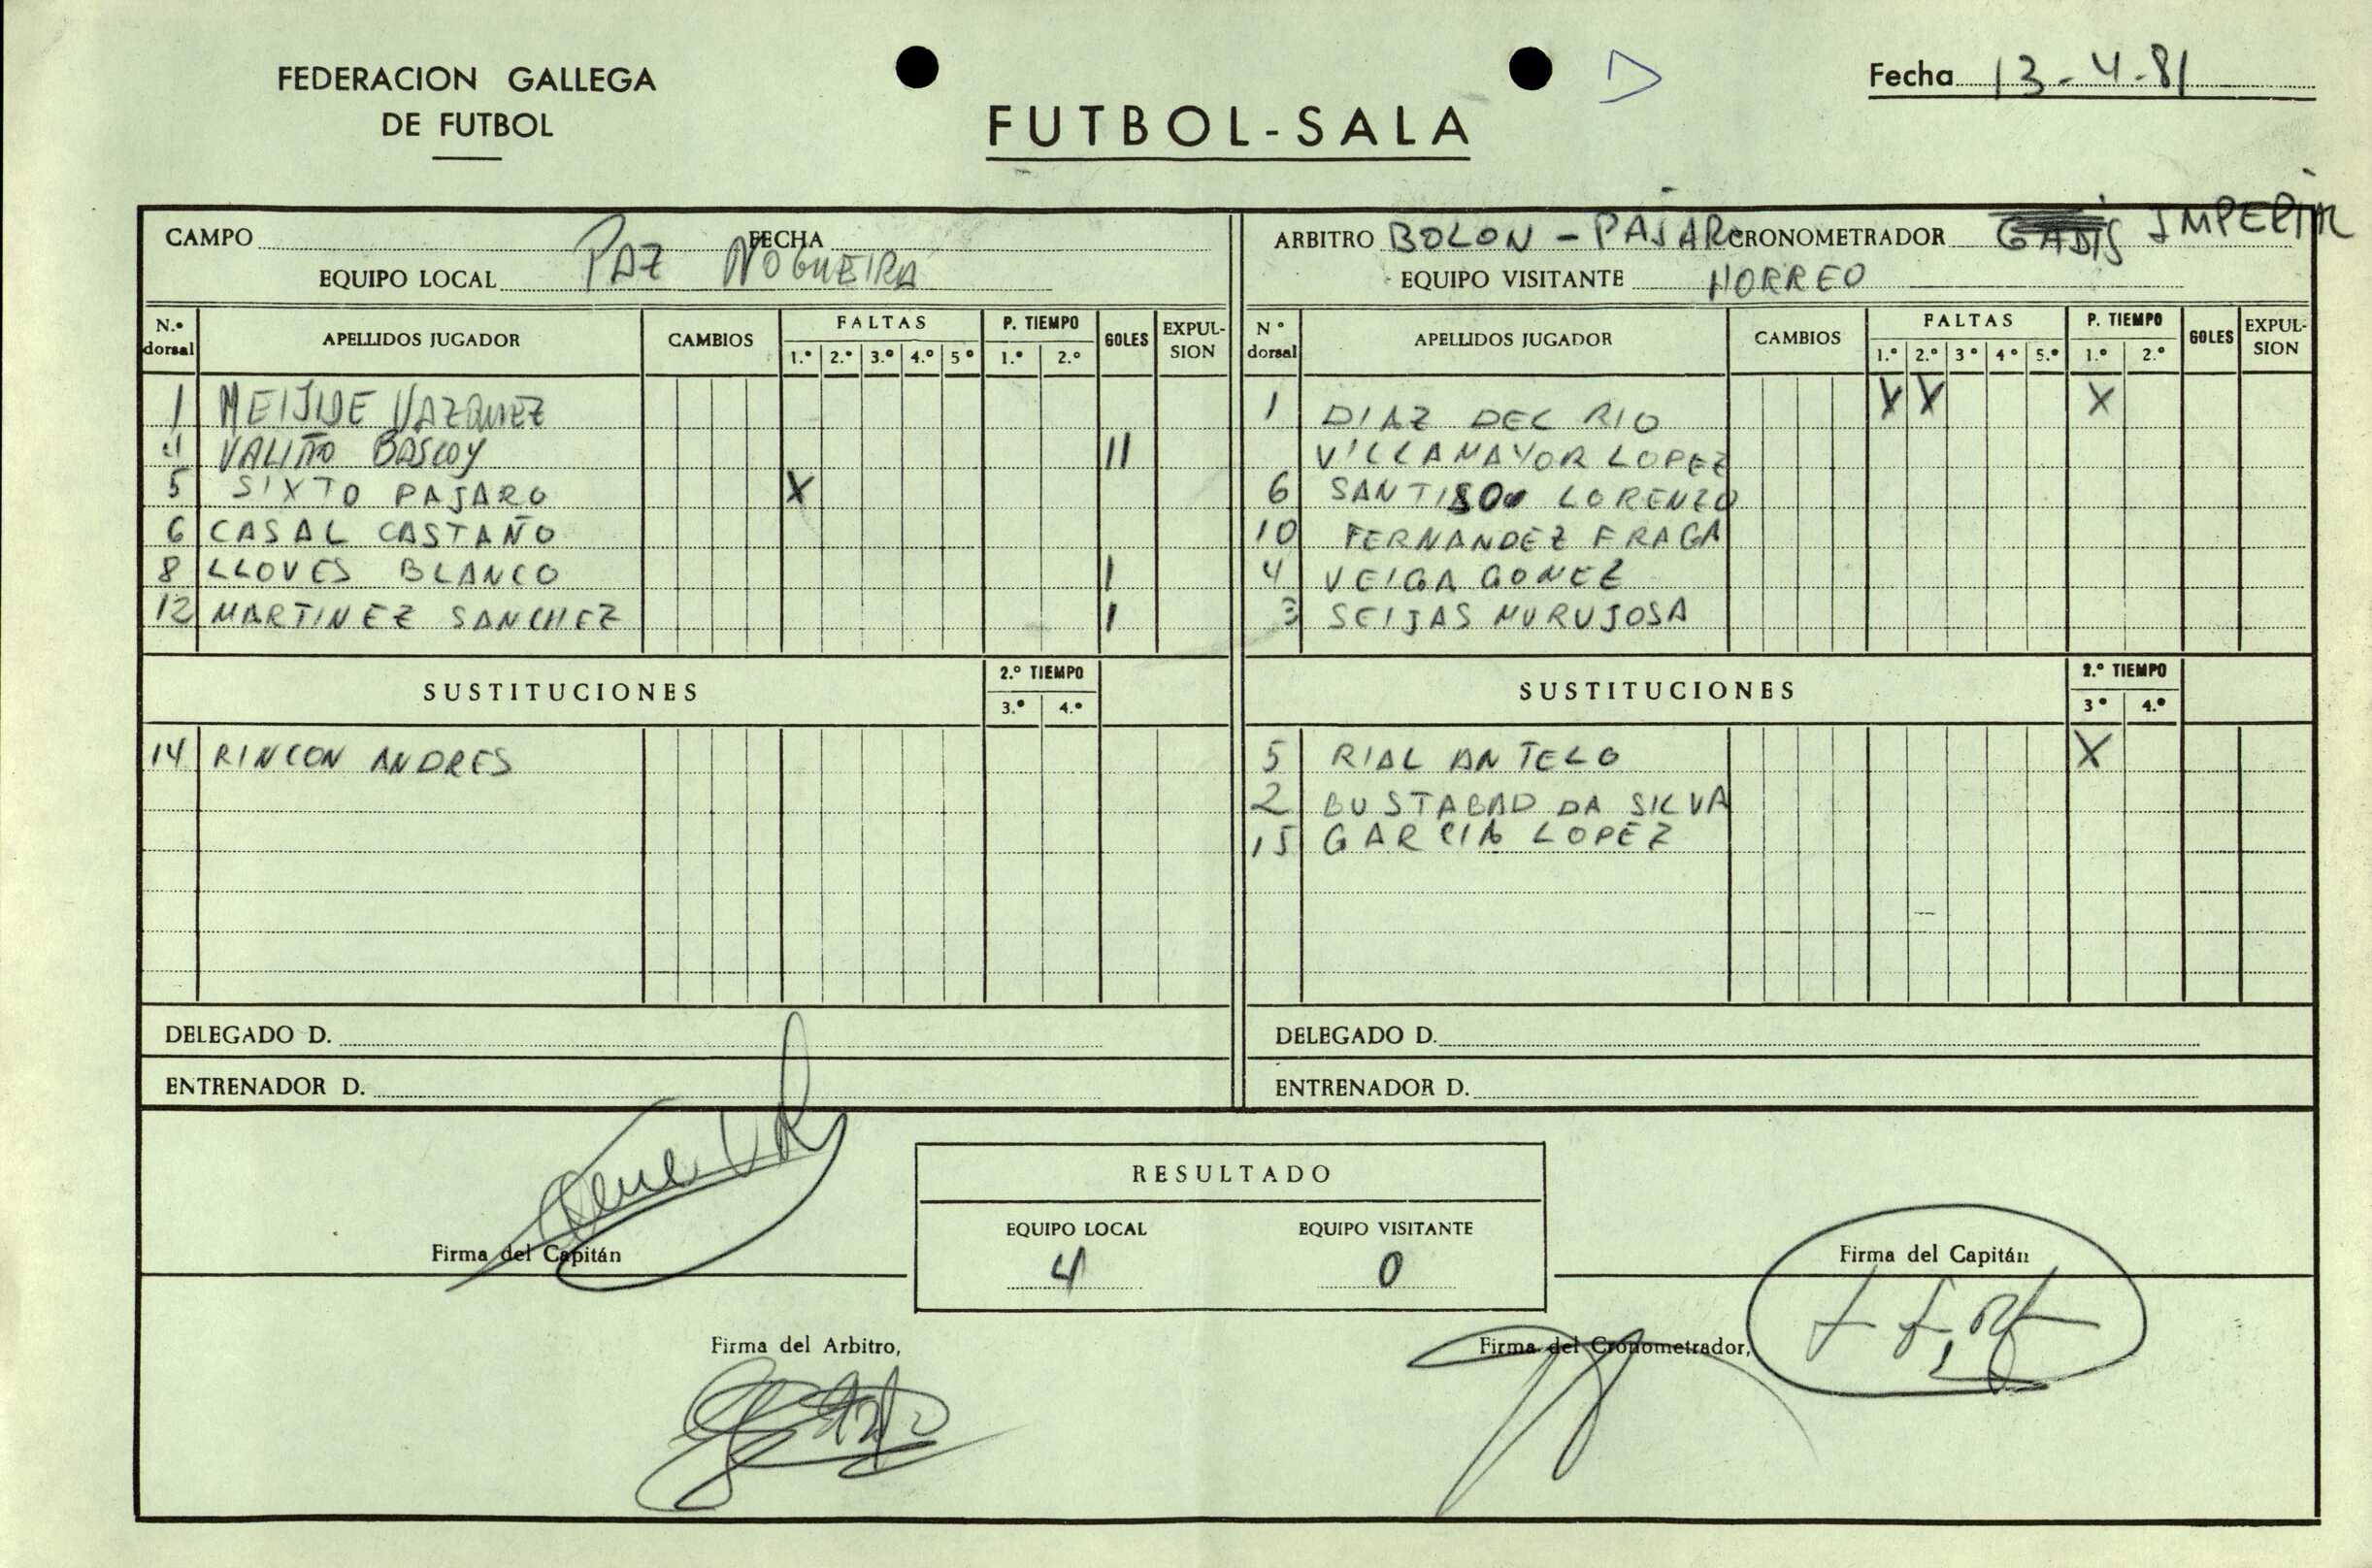 FEDERACION GALLEGA
DE FUTBOL
FUTBOL-SALA
Fecha 13-4-81
CAMPO FECHA
EQUIPO LOCAL PAZ NOGUEIRA
ARBITRO BOLON - PAJARO CRONOMETRADOR IMPERIAL
EQUIPO VISITANTE HORREO
N.º dorsal APELLIDOS JUGADOR CAMBIOS FALTAS 1.º 2.º 3.º 4.º 5º P. TIEMPO 1.º 2.º GOLES EXPULSION
1 MEIJIDE VAZQUEZ
4 VALIÑO BASCOY II
5 SIXTO PAJARO X
6 CASAL CASTAÑO
8 LLOVES BLANCO I
12 MARTINEZ SANCHEZ I
SUSTITUCIONES 2.º TIEMPO 3.º 4.º
14 RINCON ANDRES
DELEGADO D.
ENTRENADOR D.
Nº dorsal APELLIDOS JUGADOR CAMBIOS FALTAS 1.º 2.º 3º 4º 5.º P. TIEMPO 1.º 2.º GOLES EXPULSION
1 DIAZ DEL RIO X X X
VILLAMAYOR LOPEZ
6 SANTISO LORENZO
10 FERNANDEZ FRAGA
4 VEIGA GOMEZ
3 SEIJAS MURUJOSA
SUSTITUCIONES 2.º TIEMPO 3º 4.º
5 RIAL ANTELO X
2 BUSTABAD DA SILVA
15 GARCIA LOPEZ
DELEGADO D.
ENTRENADOR D.
RESULTADO
EQUIPO LOCAL EQUIPO VISITANTE
4 0
Firma del Capitán
Firma del Capitán
Firma del Arbitro,
Firma del Cronometrador,